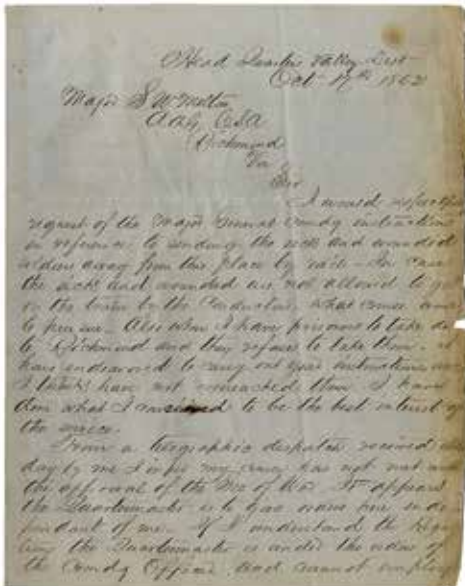 Head Quarters Valley Dist
Oct 17th 1862
Major S W Melton
AAG, CSA
Richmond
Va
Sir
I would respectfully
request of the Major General Comdg instructions
in reference to sending the sick and wounded
soldiers away from this place by rail. In case
the sick and wounded are not allowed to go
in the train by the Conductor, what course am I
to pursue. Also when I have prisons to take
to Richmond and they refuse to take them. I
have endeavored to carry out your instructions and
I think have not them. I have
done what I to be the best interest of
the service.
From a telegraphic despatch received
day by me I infer my course has not met with
the approval of the Sec of War. It appears
the Quartermaster is to give orders here inde
pendant of me. If I understand the
the Quartermaster is under the orders of
the Comdg Officer, and cannot employ